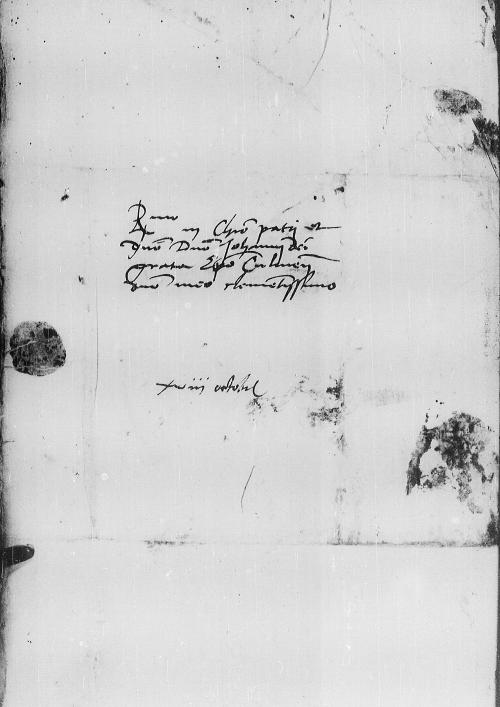 R mo
in Chro patri et
dno Dno Johanni dei
gratia Epo Culmen
dno meo clementissimo
xviii octobr